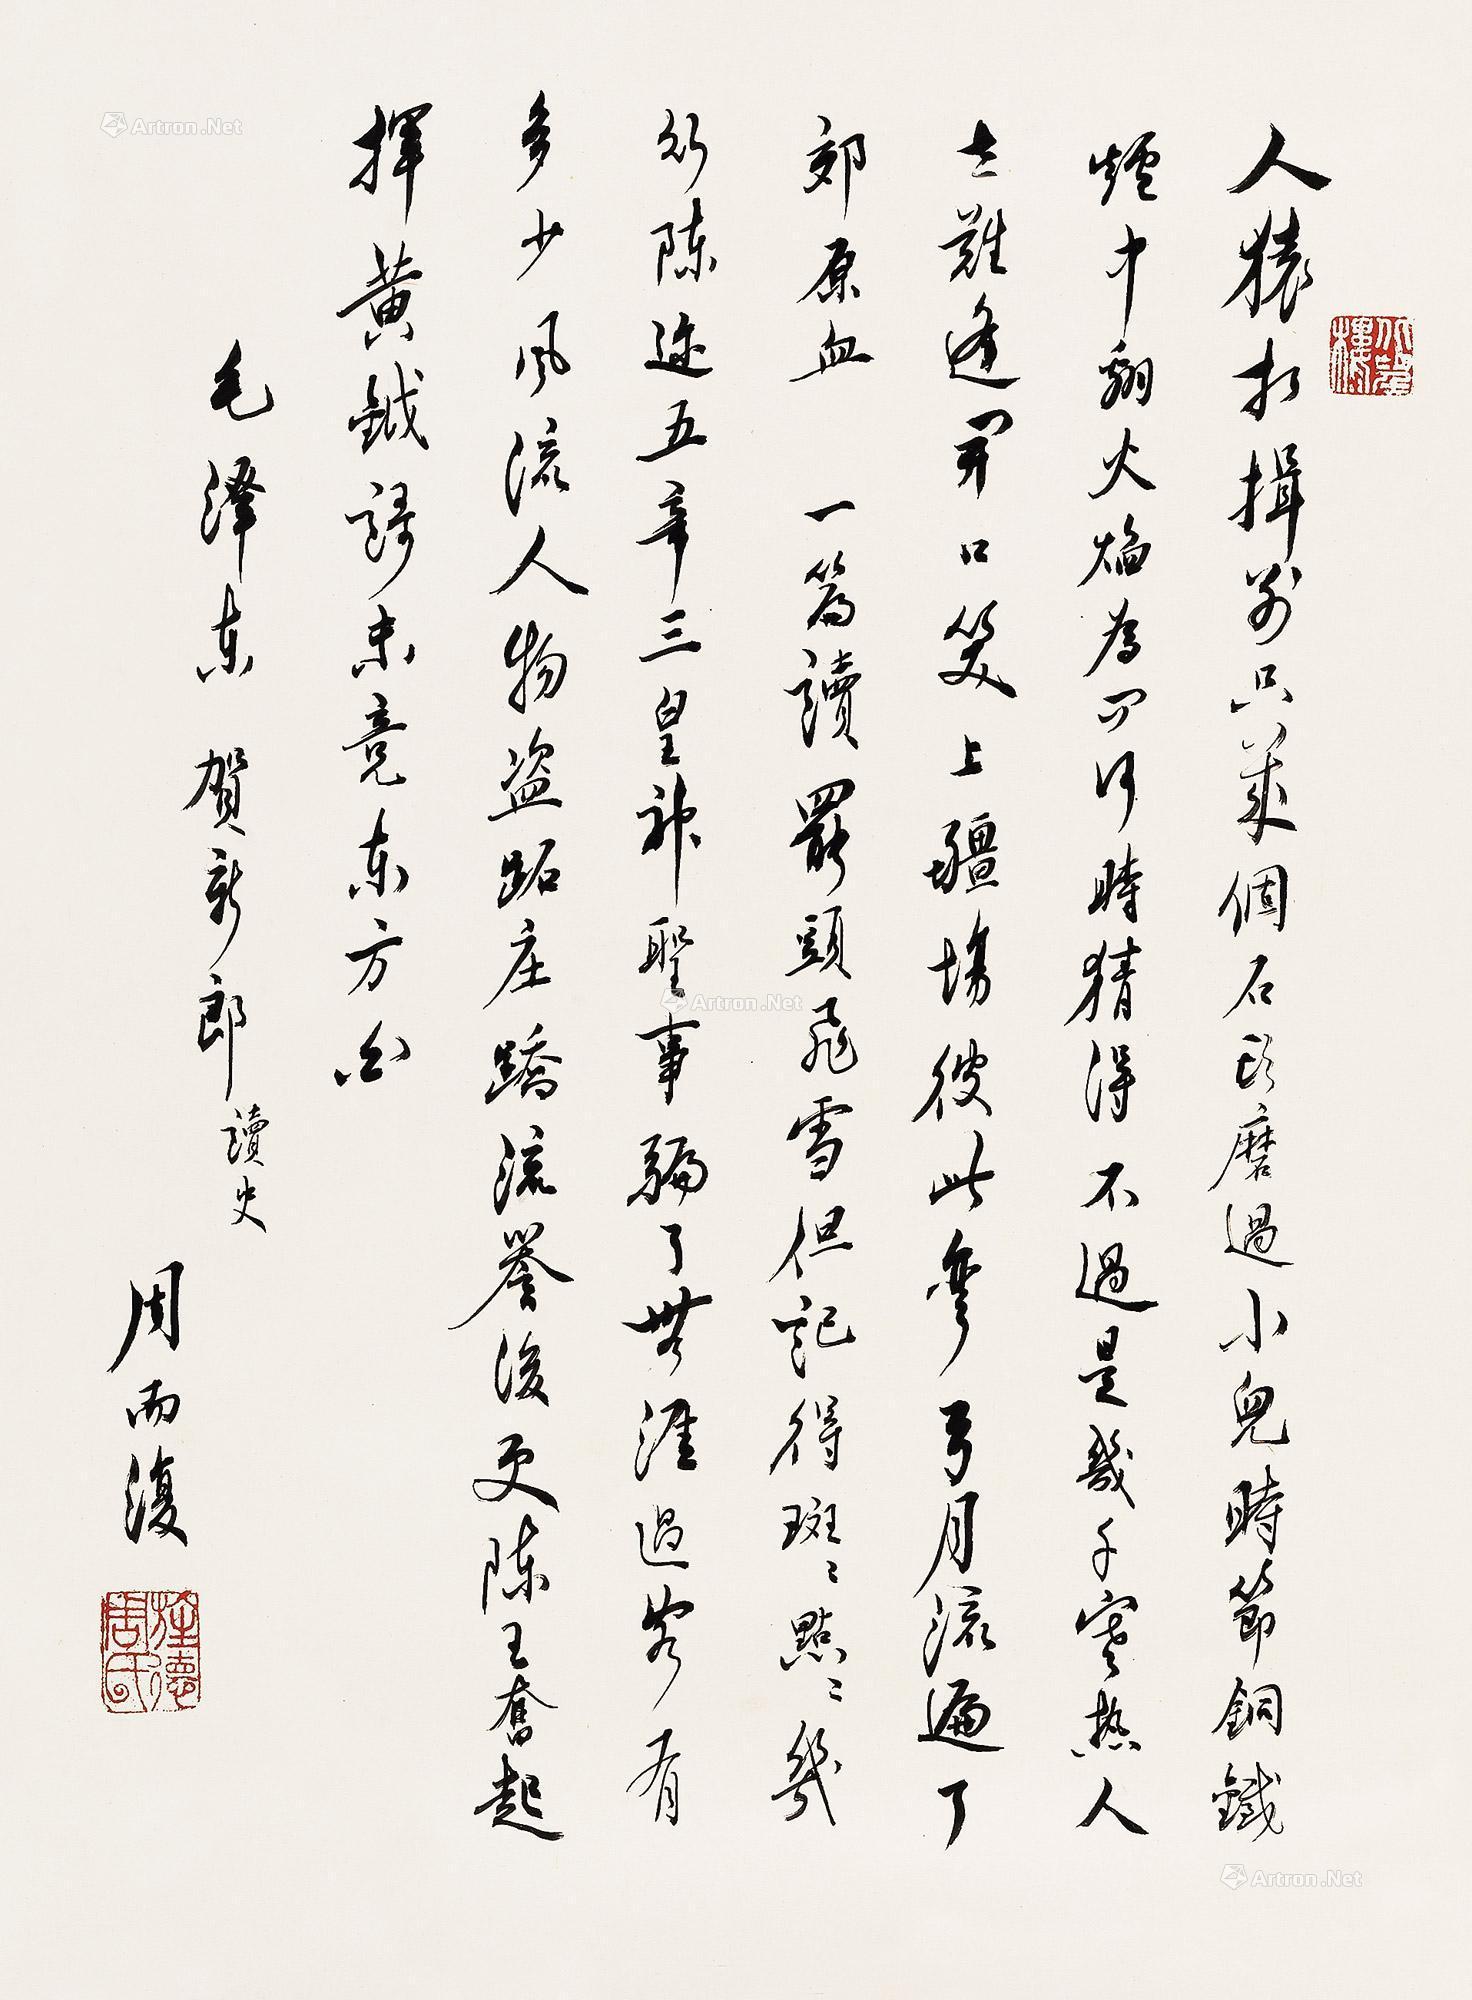 人猿相揖别只幾個石頭磨過小兒時節銅鐵
爐中翻火焰為問何時猜得不過是幾千寒熱人
世難逢開口笑上疆場彼此彎弓月流遍了
郊原血 一篇讀罷頭飛雪但記得斑〻點〻幾
行陳迹五帝三皇神聖事騙了無涯過客有
多少風流人物盜跖庄蹻流譽後更陳王奮起
揮黃鉞歌未竟東方白
毛澤東 賀新郎 讀史
周而復
周氏
Artron.Net
Artron.Net
Artron.Net